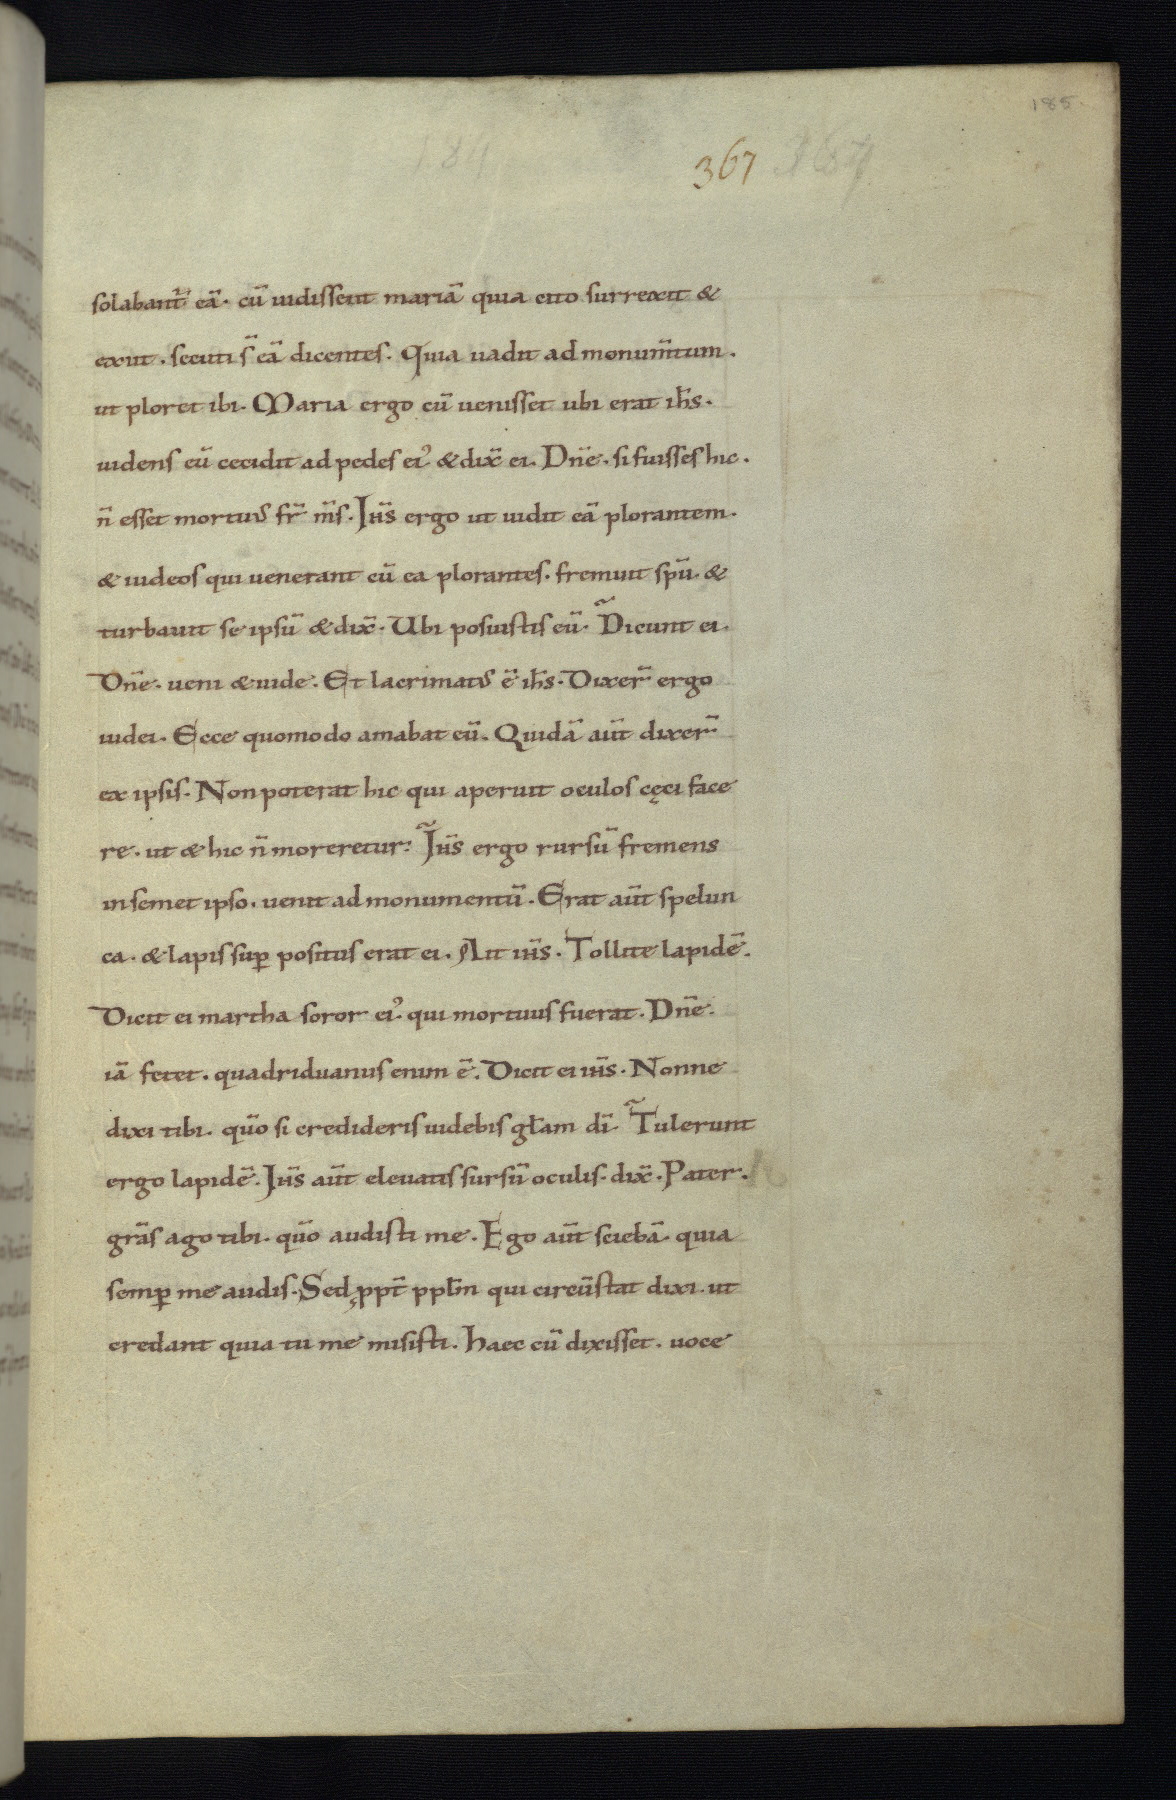 185
367
solabant̄ eā. cū uidissent mariā quia cito surrexit &
exiit. secuti s̄ eā dicentes. Quia uadit ad monum̄tum.
ut ploret ibi. Maria ergo cū uenisset ubi erat ih̄s.
uidens eū cecidit ad pedes ei᾽ & dix̄ ei. Dn̄e. si fuisses hic.
n̄ esset mortu᾽ fr̄ m̄s. Ih̄s ergo ut uidit eā plorantem.
& iudeos qui uenerant cū ea plorantes. fremuit spū. &
turbauit se ipsū & dix̄. Ubi posuistis eū. Dicunt ei.
Dn̄e. ueni & uide. Et lacrimat᾽ ē ih̄s. Dixer̄ ergo
iudei. Ecce quomodo amabat eū. Quidā aūt dixer̄
ex ipsis. Non poterat hic qui aperuit oculos cęci face
re. ut & hic n̄ moreretur. Ih̄s ergo rursū fremens
in semet ipso. uenit ad monumentū. Erat aūt spelun
ca. & lapis sup̄ positus erat ei. Ait ih̄s. Tollite lapidē.
Dicit ei martha soror ei᾽ qui mortuus fuerat. Dn̄e.
iā fetet. quadriduanus enim ē. Dicit ei ih̄s. Nonne
dixi tibi. qūo si credideris uidebis gl̄am dī. Tulerunt
ergo lapidē. Ih̄s aūt eleuatis sursū oculis. dix̄. Pater.
grās ago tibi. qūo audisti me. Ego aūt sciebā. quia
semp̄ me audis. Sed ꝓpt̄ ppl̄m qui circūstat dixi. ut
credant quia tu me misisti. Haec cū dixisset. uoce